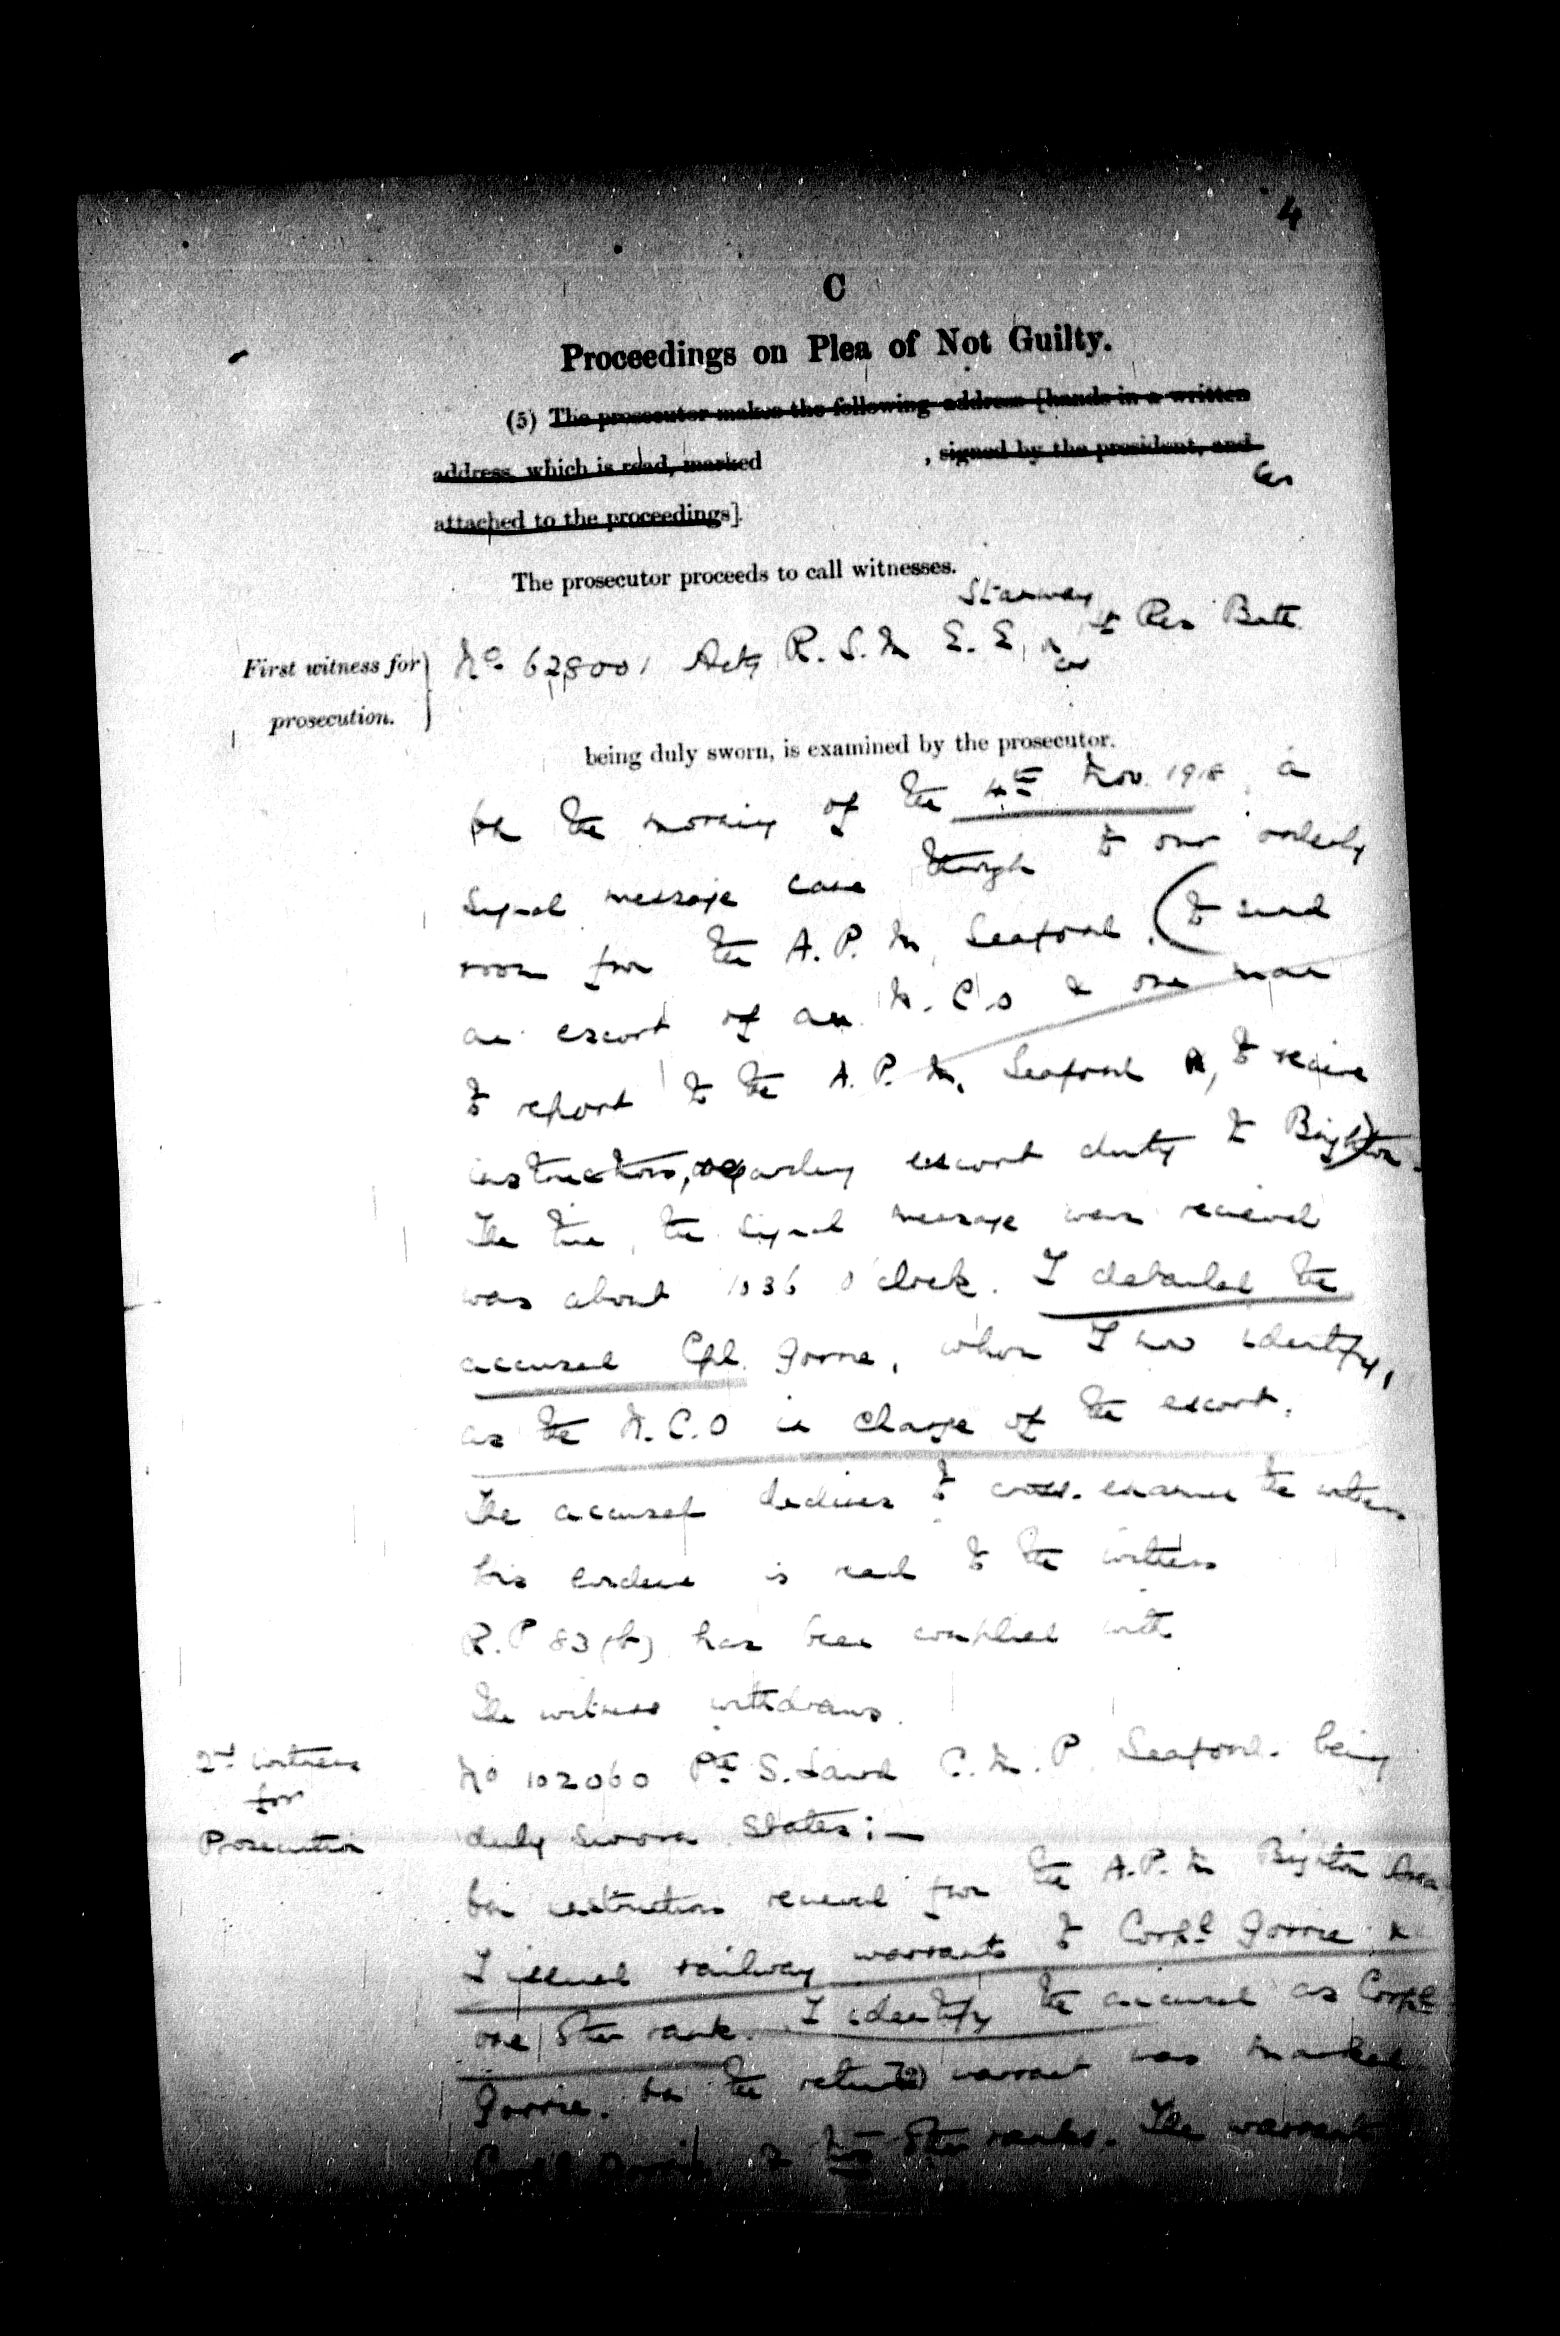 4
C
Proceedings on Plea of Not Guilty.
(5) The prosecutor makes the following address [hands in a written
address, which is read, marked , signed by the president, and
attached to the proceedings].
The prosecutor proceeds to call witnesses.
Stanway
First witness for prosecution.
No 628001 Actg R.S.M E.E. 1st Res Batt.
being duly sworn, is examined by the prosecutor.
On the morning of the 4th Nov. 1918, a
signal message came through to our orderly
room from the A.P.M. Seaford, (to send
an escort of an N.C.O & one man
to report to the A.P.M. Seaford, to receive
instructions, regarding escort duty to Brighton).
The time, the signal message was recieved
was about 1036 o'clock. I detailed the
accused Cpl. Gorrie, whom I now identify,
as the N.C.O in charge of the escort.
The accused declines to cross-examine the witness
His evidence is read to the witness
R.P 83(b) has been complied with
The witness withdraws.
2nd witness
for
Prosecution
No 102060 Pte S. C.M.P. Seaford. being
duly sworn states:—
On instructions received from the A.P.M Brighton Area
I issued railway warrants to Corpl Gorrie &
one other rank. I identify the accused as Corpl
Gorrie. On the return warrant was marked
Corpl Gorrie & two other ranks. The warrant